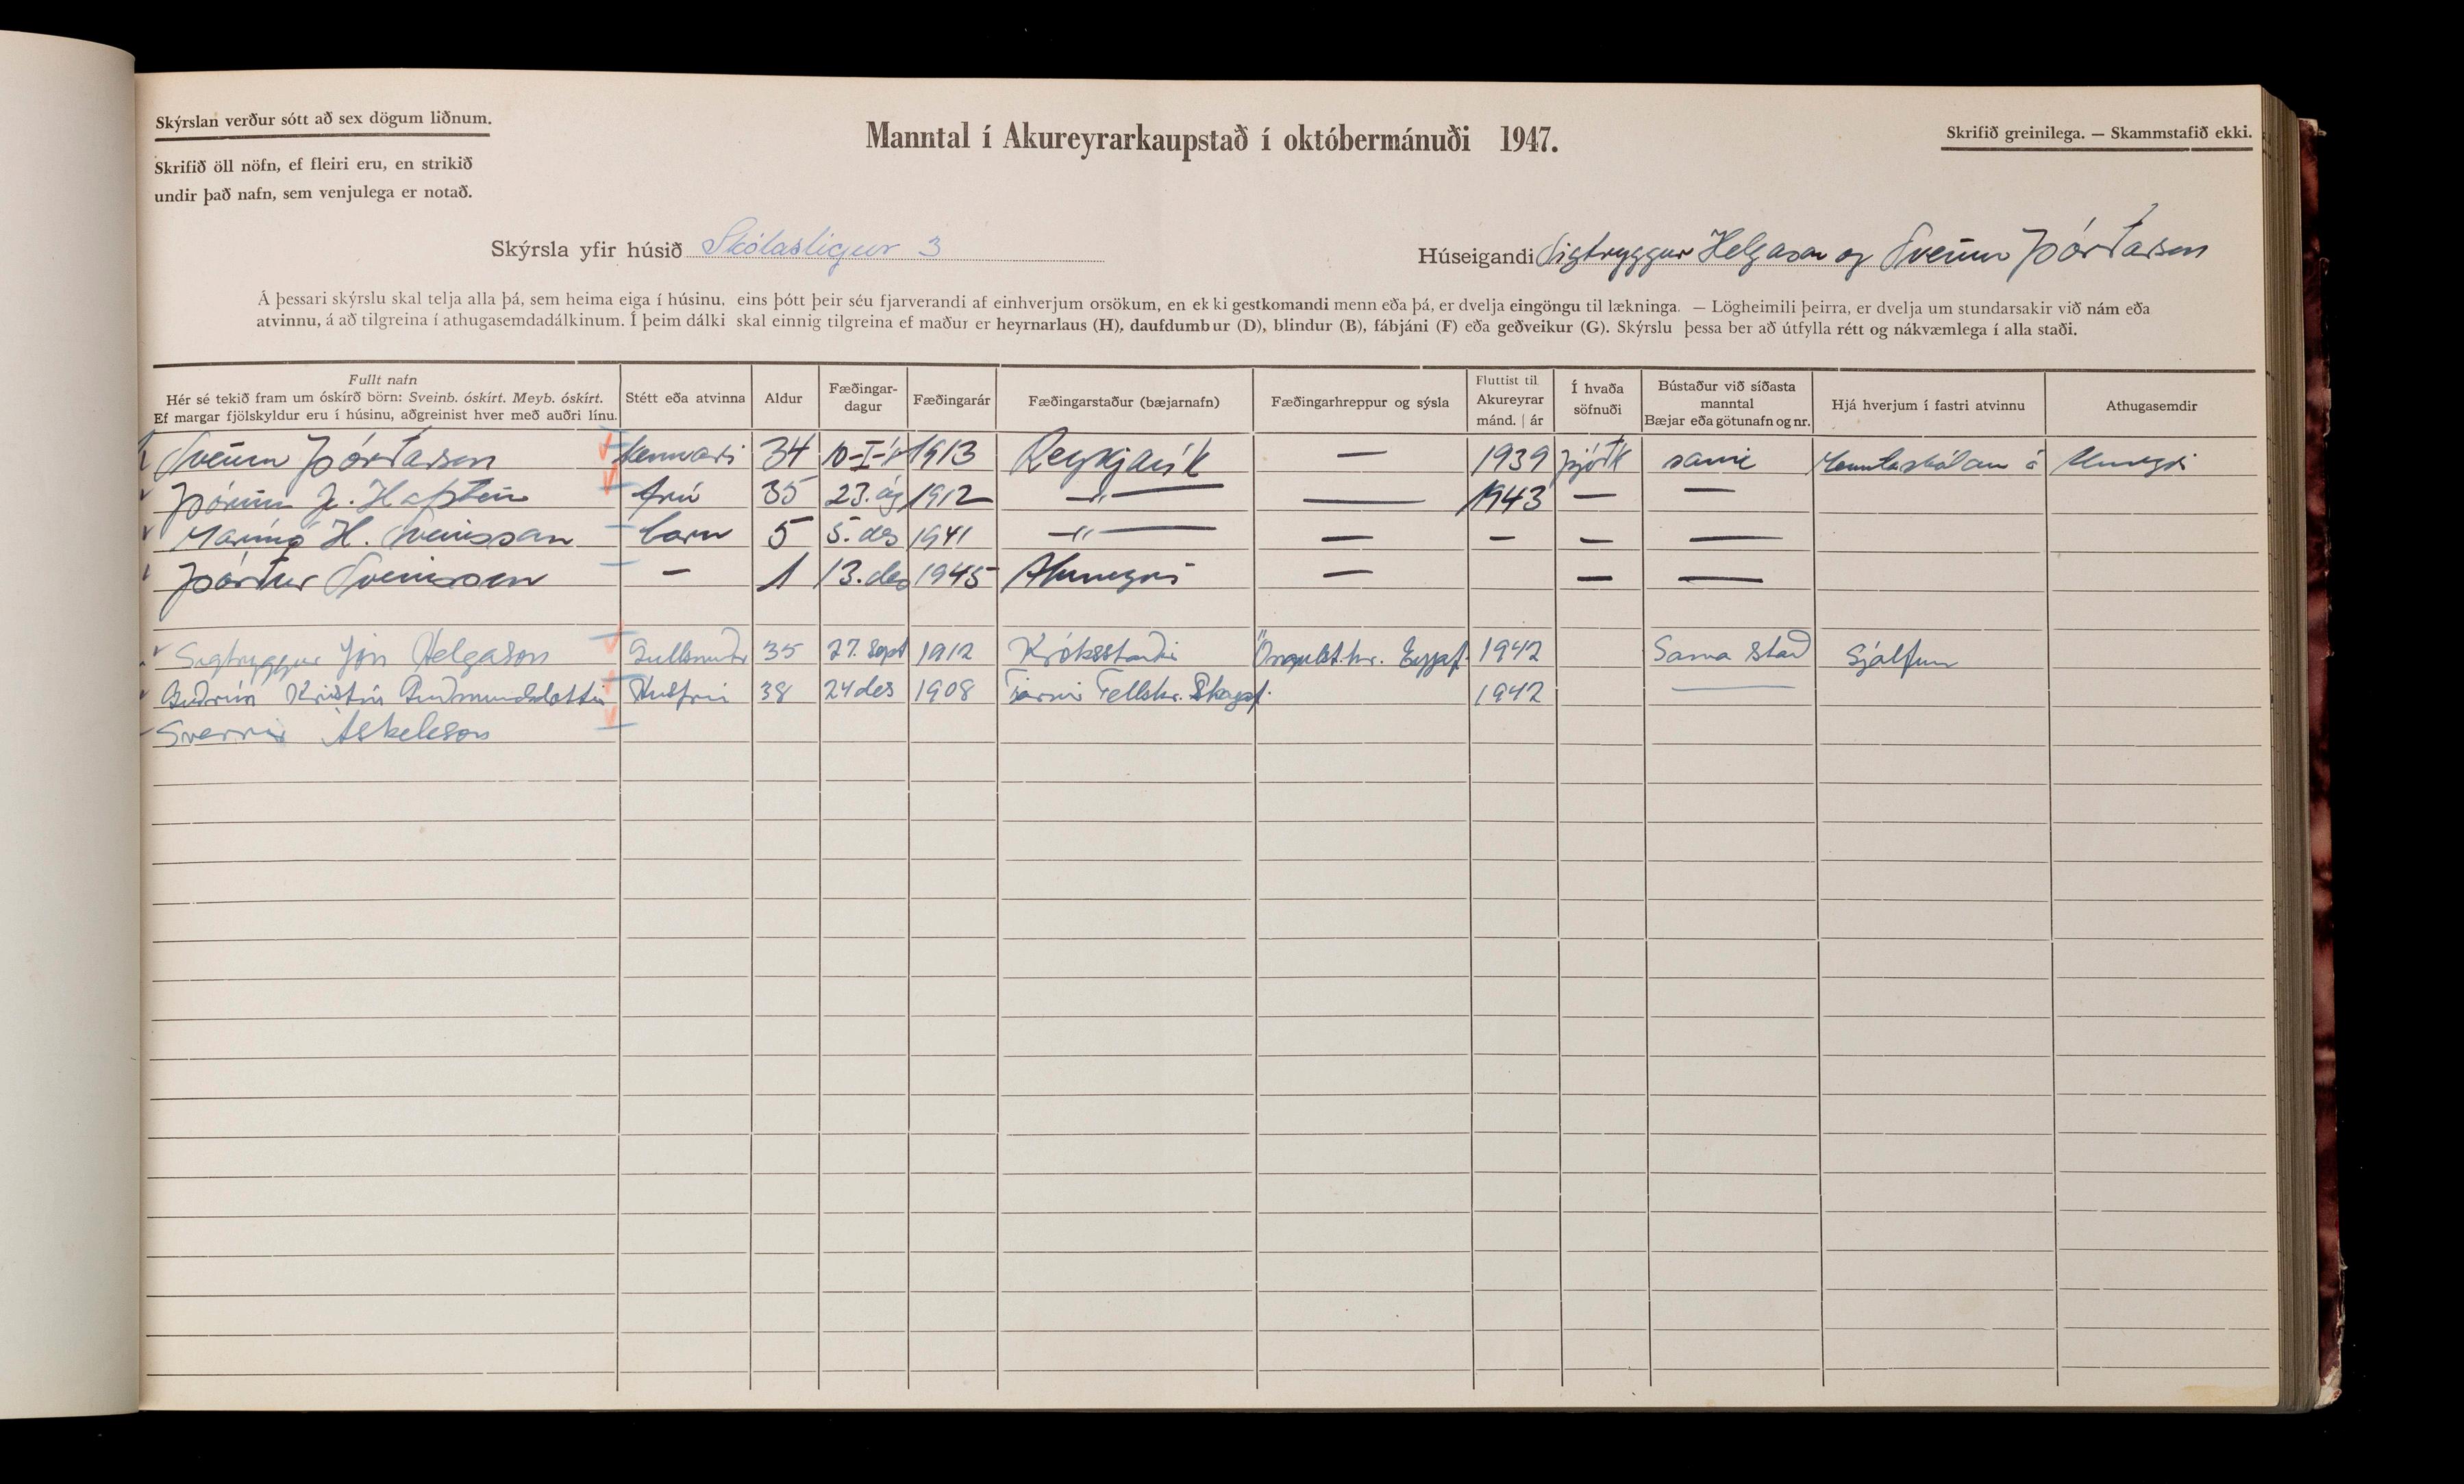 Skýrslan verður sótt að sex dögum liðnum.
Skrifið öll nöfn, ef fleiri eru, en strikið
undir það nafn, sem venjulega er notað.
Manntal í Akureyrarkaupstað í októbermánuði 1947.
Skrifið greinilega. — Skammstafið ekki.
Skýrsla yfir húsið Skólastígur 3
Húseigandi Sigtryggur Helgason og Sveinn Þórðarson
Á þessari skýrslu skal telja alla þá, sem heima eiga í húsinu, eins þótt þeir séu fjarverandi af einhverjum orsökum, en ekki gestkomandi menn eða þá, er dvelja eingöngu til lækninga. — Lögheimili þeirra, er dvelja um stundarsakir við nám eða
atvinnu, á að tilgreina í athugasemdadálkinum. Í þeim dálki skal einnig tilgreina ef maður er heyrnarlaus (H), daufdumbur (D), blindur (B), fábjáni (F) eða geðveikur (G). Skýrslu þessa ber að útfylla rétt og nákvæmlega í alla staði.
Fullt nafn
Hér sé tekið fram um óskírð börn: Sveinb. óskírt. Meyb. óskírt.
Ef margar fjölskyldur eru í húsinu, aðgreinist hver með auðri línu.
Stétt eða atvinna
Aldur
Fæðingar-
dagur
Fæðingarár
Fæðingarstaður (bæjarnafn)
Fæðingarhreppur og sýsla
Fluttist til
Akureyrar
mánd. | ár
Í hvaða
söfnuði
Bústaður við síðasta
manntal
Bæjar eða götunafn og nr.
Hjá hverjum í fastri atvinnu
Athugasemdir
Sveinn Þórðarson kennari 34 10-I- 1913 Reykjavík — 1939 þjóðk sami Menntaskólann á Akureyri
Þórunn J. Hafstein frú 35 23. ág 1912 —"— — 1943 — —
Marinó H. Sveinsson barn 5 5. des 1941 —"— — — — —
Þórður Sveinsson — 1 13. des 1945 Akureyri — — —
Sigtryggur Jón Helgason Gullsmiður 35 27. sept 1912 Króksstaðir Öngulst.hr. Eyjaf. 1942 Sama stað Sjálfum
Guðrún Kristín Guðmundsdóttir Húsfrú 38 24 des 1908 Fellshr. Skagaf. 1942 —
Sverrir Áskelsson